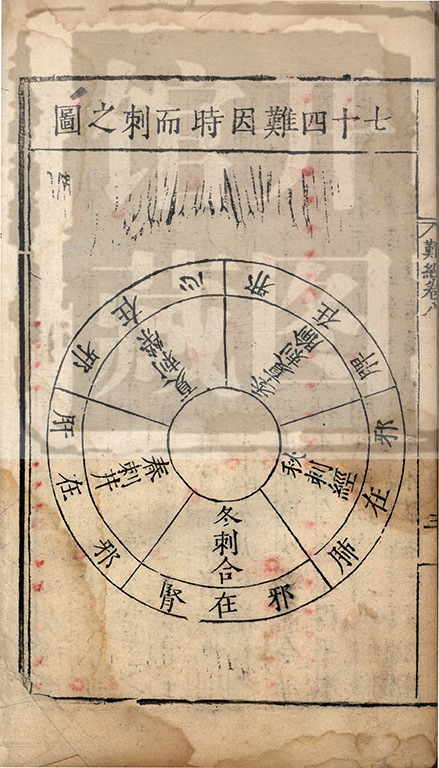 七十四難因時而刺之圖
邪在心
夏刺滎
邪在脾
季夏刺腧
邪在肺
秋刺經
邪在腎
冬刺合
邪在肝
春刺井
難經卷八
三